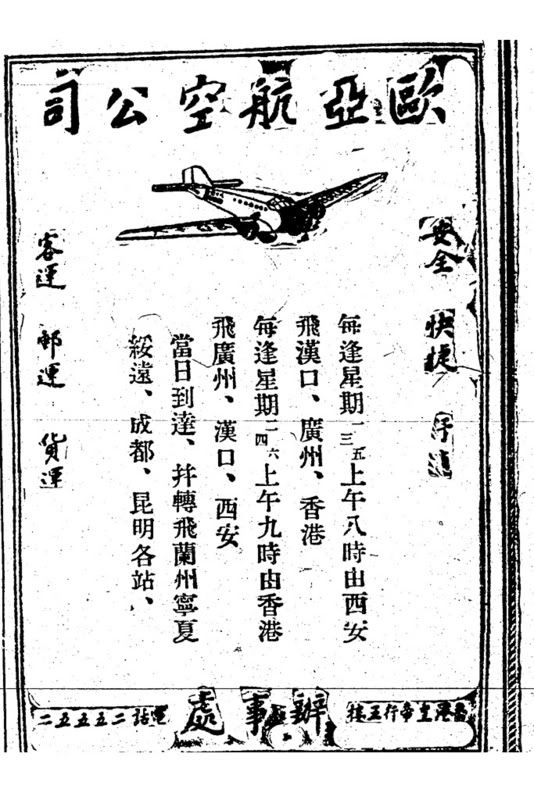 歐亞航空公司
安全 快捷 舒適
每逢星期一三五上午八時由西安
飛漢口、廣州、香港
每逢星期二四六上午九時由香港
飛廣州、漢口、西安
當日到達、幷轉飛蘭州寧夏
綏遠、成都、昆明各站、
客運 郵運 貨運
香港皇帝行五樓
辦事處
電話二五五五二